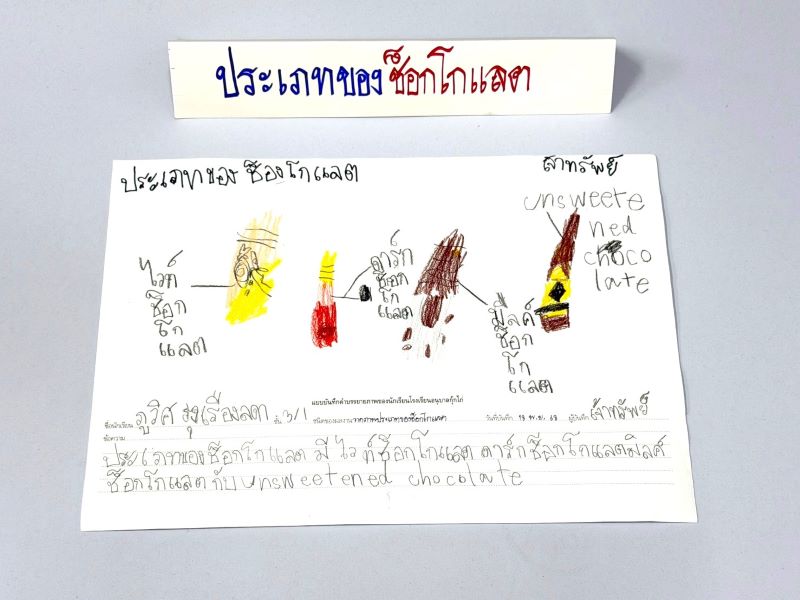 ประเภทของช็อกโกแลต
ประเภทของ ช็องโกแลต
unsweete
ned
choco
late
ไวท์
ช็อก
โก
แลต
ดาร์ก
ช็อก
โก
แลต
มิลค์
ช็อก
โก
แลต
แบบบันทึกคำบรรยายภาพของนักเรียนโรงเรียนอนุบาลกุ๊กไก่
ชื่อนักเรียน ภูริศ รุ่งเรืองลดา ชั้น 3/1 ชนิดของผลงาน วาดภาพประเภทของช็อกโกแลต วันที่บันทึก ผู้บันทึก
ข้อความ
ประเภทของช็อกโกแลต มี ไวท์ช็อกโกแลต ดาร์กช็อกโกแลตมิลค์
ช็อกโกแลต กับ unsweetened chocolate